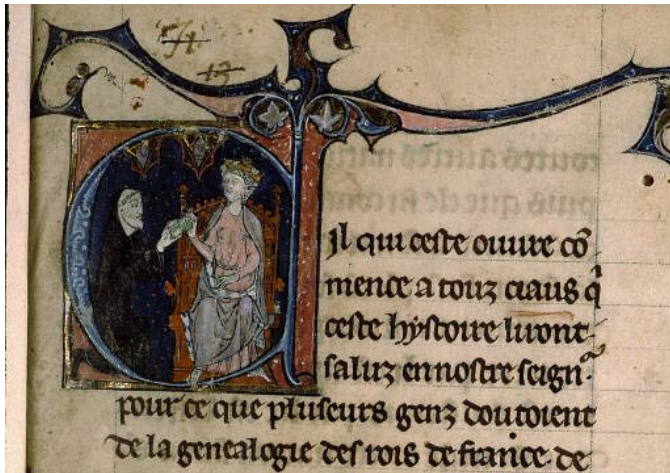 71
13
Cil qui ceste ouure cō
mence a touz ciaus q̄
ceste hystoire liront
saluz en nostre seign̄r.
pour ce que pluseurs genz doutoient
de la genealogie des rois de france. de